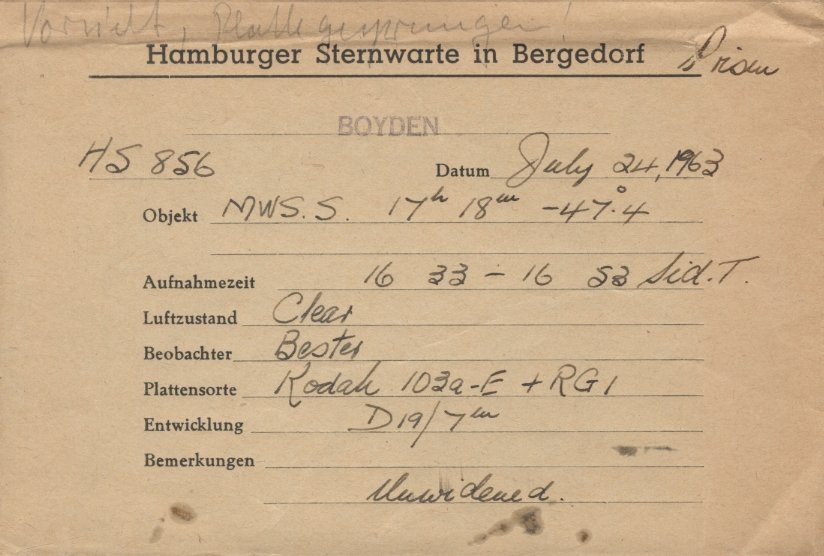 Vorsicht, Platte gesprungen!
Hamburger Sternwarte in Bergedorf
Prism
BOYDEN
HS 856 Datum July 24, 1963
Objekt MWS.S. 17h 18m -47°.4
Aufnahmezeit 16 33 - 16 53 Sid. T.
Luftzustand Clear
Beobachter Bester
Plattensorte Kodak 103a-E + RG1
Entwicklung D19/7m
Bemerkungen
Unwidened.